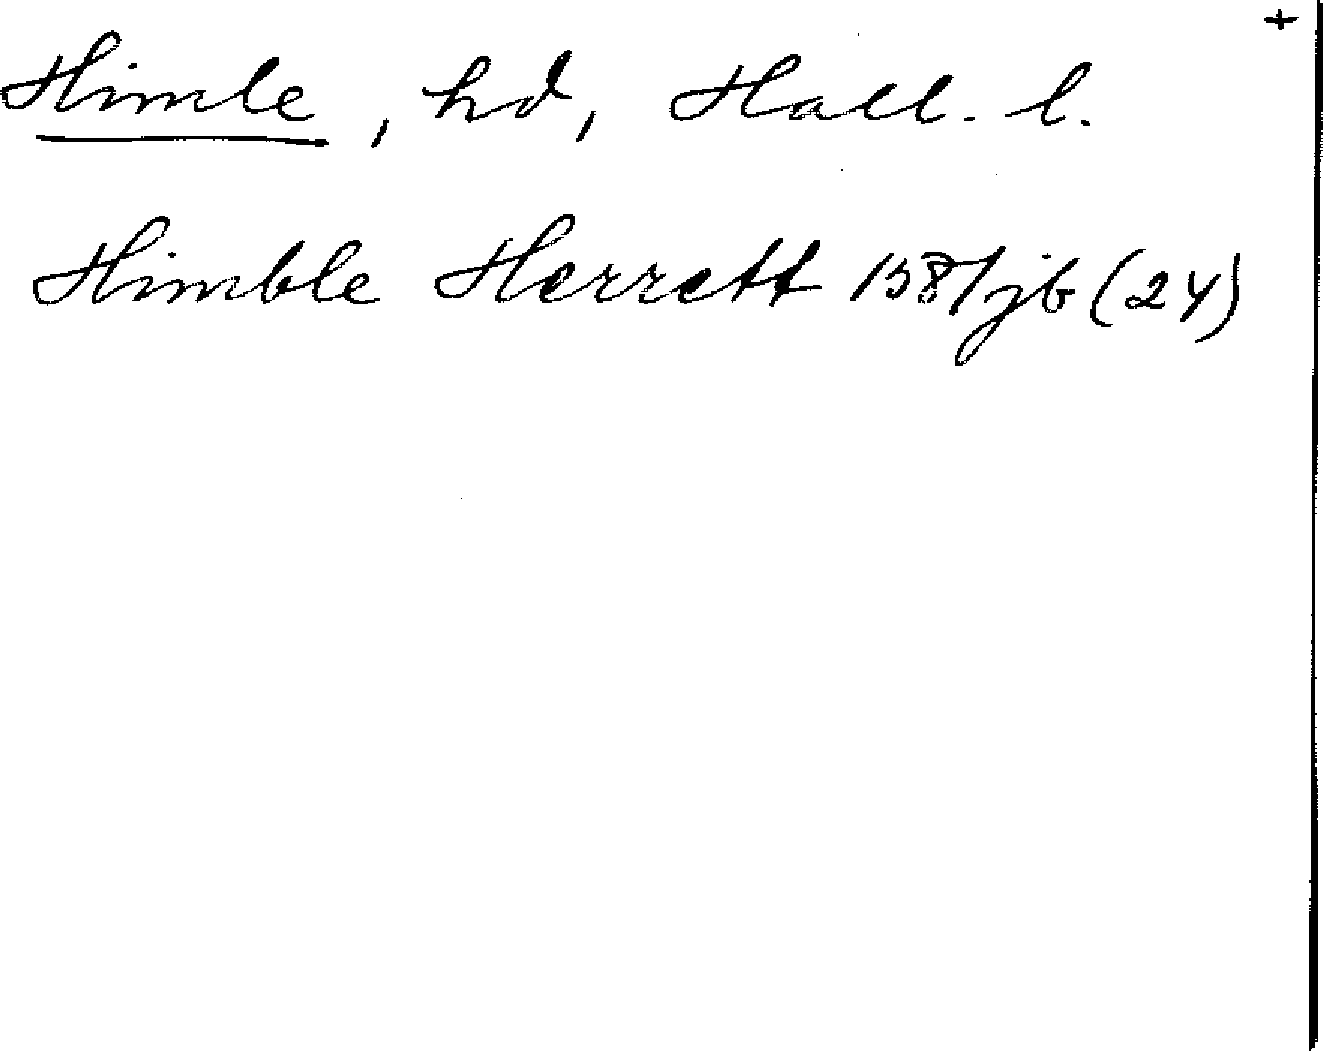 +
Himle, hd, Hall. l.
Himble Herrett 1587 jb (24)